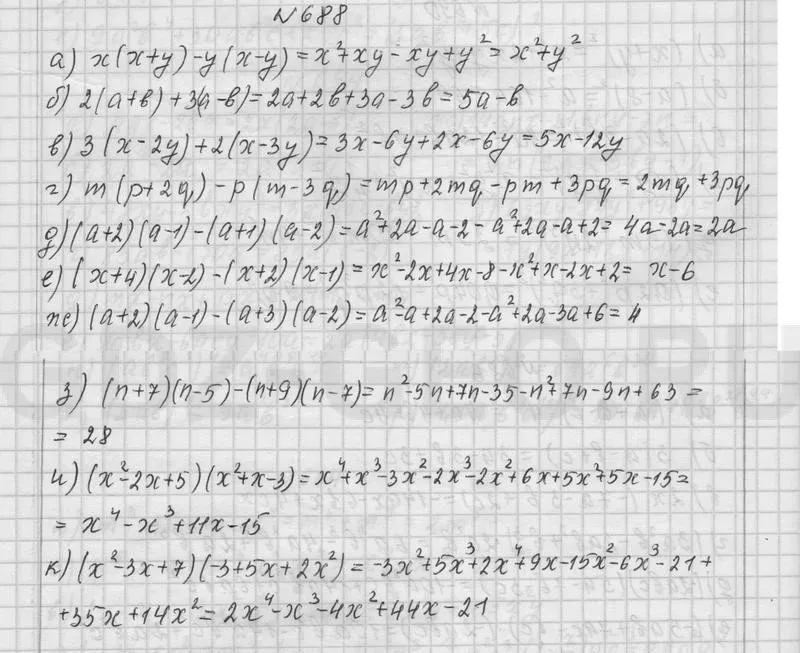 №688
а) x(x+y)-y(x-y)=x²+xy-xy+y²=x²+y²
б) 2(a+в)+3(a-в)=2a+2в+3a-3в=5a-в
в) 3(x-2y)+2(x-3y)=3x-6y+2x-6y=5x-12y
г) m(p+2q)-p(m-3q)=mp+2mq-pm+3pq=2mq+3pq
д) (a+2)(a-1)-(a+1)(a-2)=a²+2a-a-2-a²+2a-a+2=4a-2a=2a
е) (x+4)(x-2)-(x+2)(x-1)=x²-2x+4x-8-x²+x-2x+2=x-6
ж) (a+2)(a-1)-(a+3)(a-2)=a²-a+2a-2-a²+2a-3a+6=4
з) (n+7)(n-5)-(n+9)(n-7)=n²-5n+7n-35-n²+7n-9n+63=
=28
и) (x²-2x+5)(x²+x-3)=x⁴+x³-3x²-2x³-2x²+6x+5x²+5x-15=
=x⁴-x³+11x-15
к) (x²-3x+7)(-3+5x+2x²)=-3x²+5x³+2x⁴+9x-15x²-6x³-21+
+35x+14x²=2x⁴-x³-4x²+44x-21